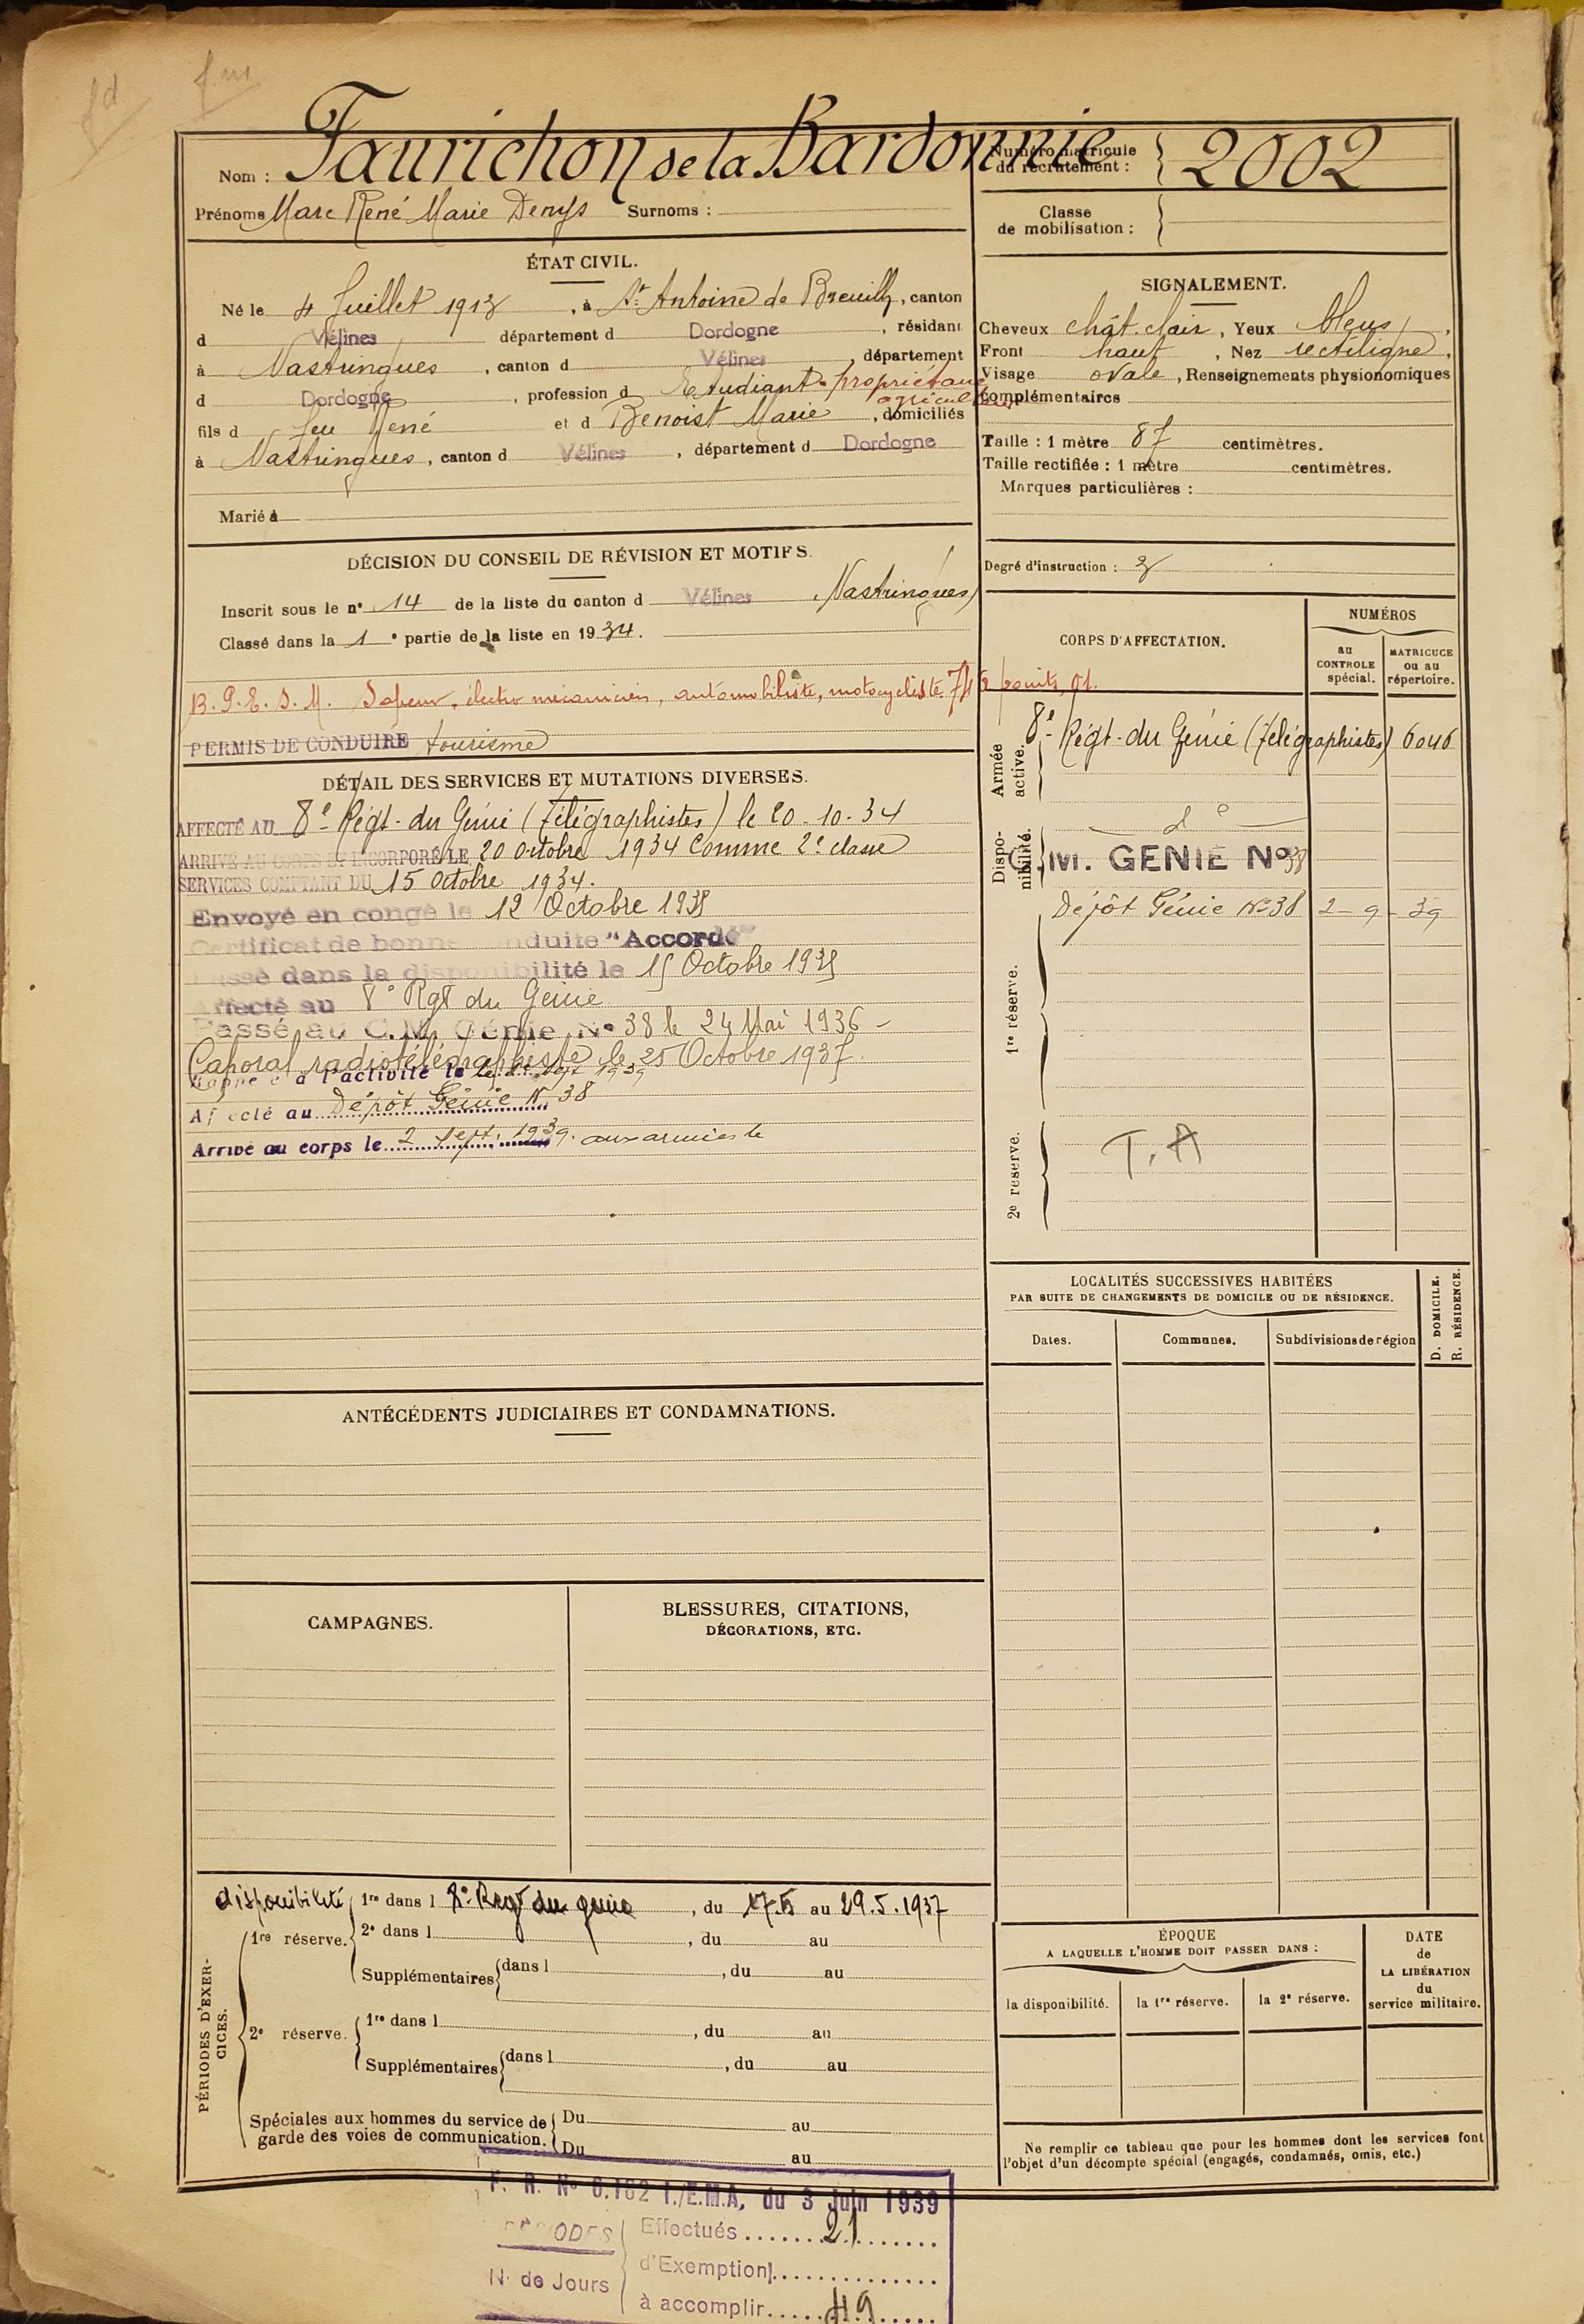 Nom : Faurichon de la Bardonnie
Prénoms Marc René Marie Denys Surnoms :
Numéro matricule
du recrutement : 2002
Classe
de mobilisation :
ÉTAT CIVIL.
Né le 4 Juillet 1913, à St Antoine de Breuilh, canton
d Vélines département d Dordogne, résidant
à Nastringues, canton d Vélines, département
d Dordogne, profession d Etudiant - propriétaire
agriculteur
fils d feu René et d Benoist Marie, domiciliés
à Nastringues, canton d Vélines, département d Dordogne
Marié à
SIGNALEMENT.
Cheveux chât. clair, Yeux bleus,
Front haut, Nez rectiligne,
Visage ovale, Renseignements physionomiques
complémentaires
Taille : 1 mètre 87 centimètres.
Taille rectifiée : 1 mètre centimètres.
Marques particulières :
Degré d'instruction : 3
DÉCISION DU CONSEIL DE RÉVISION ET MOTIFS.
Inscrit sous le n° 14 de la liste du canton d Vélines, Nastringues
Classé dans la 1e partie de la liste en 1934.
B.P.E.S.M. Sapeur, électro mécanicien, automobiliste, motocycliste 74 points
PERMIS DE CONDUIRE tourisme
DÉTAIL DES SERVICES ET MUTATIONS DIVERSES.
AFFECTÉ AU 8e Régt. du Génie (Télégraphistes) le 20-10-34
ARRIVÉ AU CORPS ET INCORPORÉ LE 20 octobre 1934 Comme 2e classe
SERVICES COMPTANT DU 15 Octobre 1934.
Envoyé en congé le 12 Octobre 1935
Certificat de bonne conduite "Accordé"
Passé dans la disponibilité le 15 Octobre 1935
Affecté au 8e Rgt du Génie
Passé au C.M. Génie N° 38 le 24 Mai 1936 -
Caporal radiotélégraphiste le 25 Octobre 1937.
Rappelé à l'activité le 2 sept 1939
Affecté au Dépôt Génie N° 38
Arrivé au corps le 2 sept. 1939. aux armées le
CORPS D'AFFECTATION.
NUMÉROS
au
CONTROLE
spécial.
MATRICUCE
ou au
répertoire.
Armée
active.
8e Régt. du Génie (Télégraphistes) 6046
Dispo-
nibilité.
d°
C.M. GENIE N° 38
1re réserve.
Dépôt Génie N° 38 2-9-39
2e reserve.
T.A
LOCALITÉS SUCCESSIVES HABITÉES
PAR SUITE DE CHANGEMENTS DE DOMICILE OU DE RÉSIDENCE.
D. DOMICILE.
R. RÉSIDENCE.
Dates. Communes. Subdivisions de région
ANTÉCÉDENTS JUDICIAIRES ET CONDAMNATIONS.
CAMPAGNES.
BLESSURES, CITATIONS,
DÉCORATIONS, ETC.
PÉRIODES D'EXER-
CICES.
disponibilité 1re dans l 8e Regt du génie, du 17.5 au 29.5.1937
1re réserve. 2e dans l, du au
Supplémentaires dans l, du au
2e réserve. 1re dans l, du au
Supplémentaires dans l, du au
Spéciales aux hommes du service de Du au
garde des voies de communication. Du au
ÉPOQUE
A LAQUELLE L'HOMME DOIT PASSER DANS :
la disponibilité. la 1re réserve. la 2e réserve.
DATE
de
LA LIBÉRATION
du
service militaire.
Ne remplir ce tableau que pour les hommes dont les services font
l'objet d'un décompte spécial (engagés, condamnés, omis, etc.)
1./E.M.A. du 3 Juin 1939
PÉRIODES Effectués 21
d'Exemption
N. de Jours
à accomplir 49